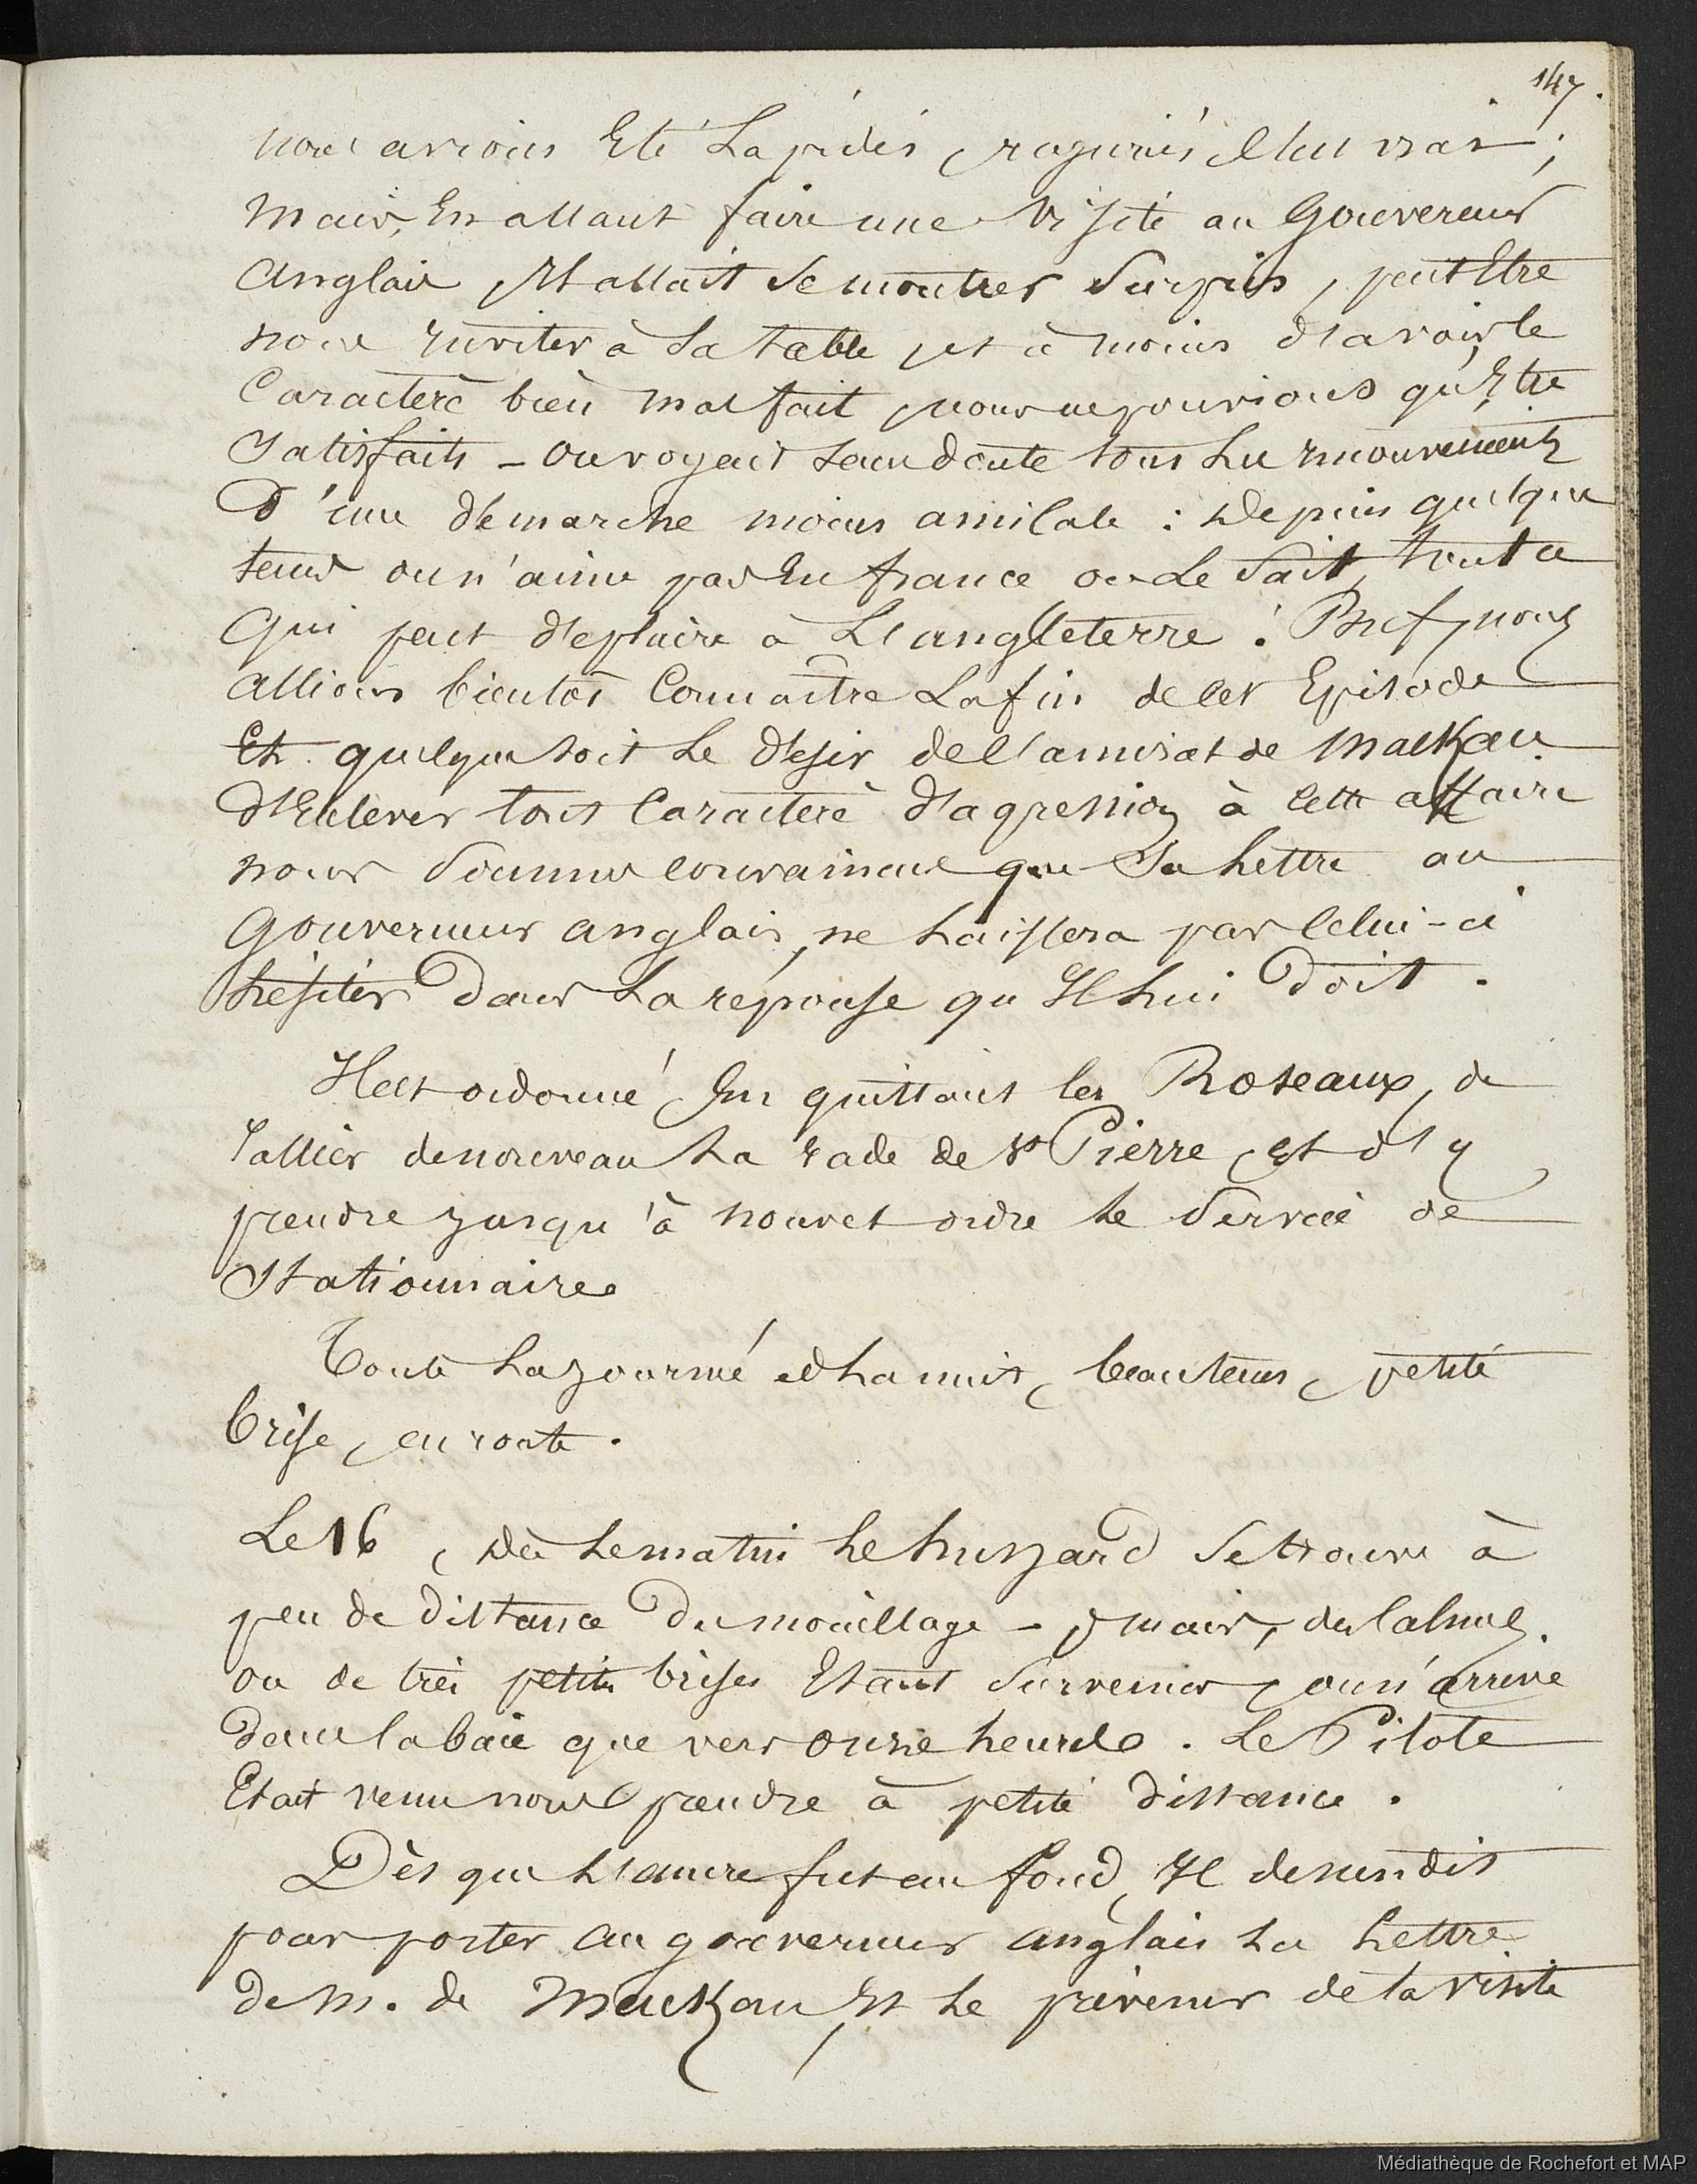 147.
nous avions Eté Lapidés, rognés il est vrai;
mais, En allant faire une Visite au Gouverneur
anglais, Il allait se montrer Surpris, peut Etre
nous inviter à Sa table, et à moins d'avoir le
Caractère bien mal fait, nous ne pouvions qu'Etre
Satisfaits - on voyait sans doute tous Les mouvements
D'une démarche moins amicale : Depuis quelque
tems on n'aime pas En france on Le Sait, tout ce
qui peut déplaire à L'angleterre : Bref, nous
allions bientôt Connaitre La fin de cet Episode
Et quelque soit Le désir de l'amiral de Mackau
d'Enlever tout Caractère d'agression à cette affaire
nous Sommes convaincus que Sa Lettre au
Gouverneur anglais, ne Laissera pas celui-ci
hésiter Dans La réponse qu'Il Lui Doit.
Il est ordonné En quittant les Roseaux, de
rallier de nouveau La rade de St Pierre, Et d'y
prendre jusqu'à nouvel ordre Le Service de
Stationnaire
Toute La journée et La nuit, beau tems, petite
brise, en route.
Le 16, Dès Le matin Le hussard Se trouve à
peu de Distance Du mouillage - mais, des calmes
ou de très petites brises Etant Survenus, on n'arrive
Dans la baie que vers onze heures. Le Pilote
Etait venu nous prendre à petite Distance.
Dès que L'ancre fut au fond, Il descendit
pour porter au gouverneur anglais La Lettre
de M. de Mackau, Et Le prévenir de la visite
Médiathèque de Rochefort et MAP